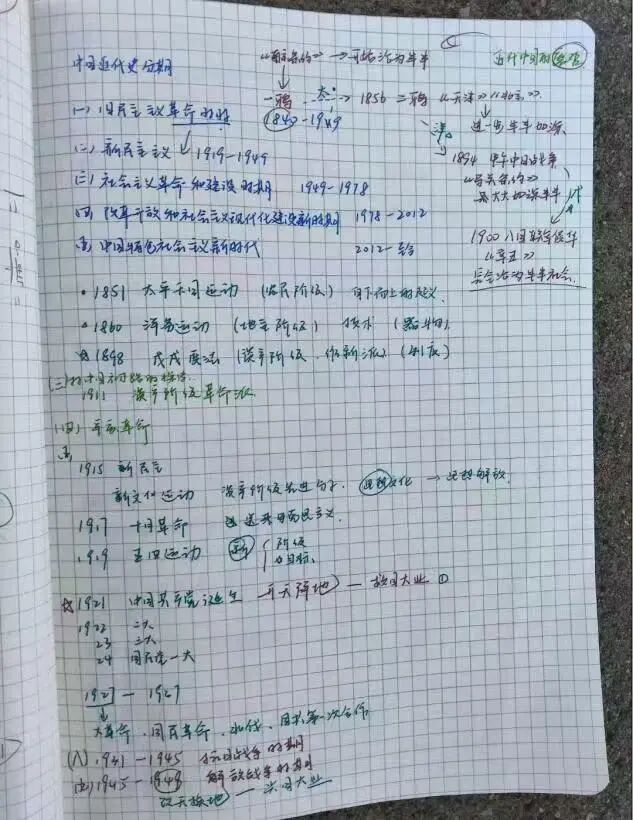 "南京条约" → 开始沦为半半
近代中国的
中国近代史分期
一鸦 → 1856 二鸦 "天津" "北京"
(一) 旧民主主义革命的时 1840-1949
进一步半半加深
(二) 新民主主义 1919-1949
1894 甲午中日战争
(三) 社会主义革命和建设时期 1949-1978
"马关条约"
大大加深半半
(四) 改革开放和社会主义现代化建设新时期 1978-2012
1900 八国联军侵华
(五) 中国特色社会主义新时代 2012-至今
"辛丑"
完全沦为半半社会
· 1851 太平天国运动 (农民阶级) 自下而上的起义
· 1860 洋务运动 (地主阶级) 技术 (器物)
1898 戊戌变法 (资产阶级·维新派) (制度)
(三) 对中国出路的探索
1911 资产阶级革命派
(四) 辛亥革命
1915 新民主
新文化运动 资产阶级 思想文化 → 思想解放
1917 十月革命 送来马恩主义
1919 五四运动 新 { 阶级
目标
☆1921 中国共产党诞生 开天辟地 — 救国大业 ①
1922 二大
23 三大
24 国民党一大
1927
大革命、国民革命、北伐、国共第一次合作
(八) 1931-1945 抗日战争时期
1945-1949 解放战争时期
改天换地 — 兴国大业